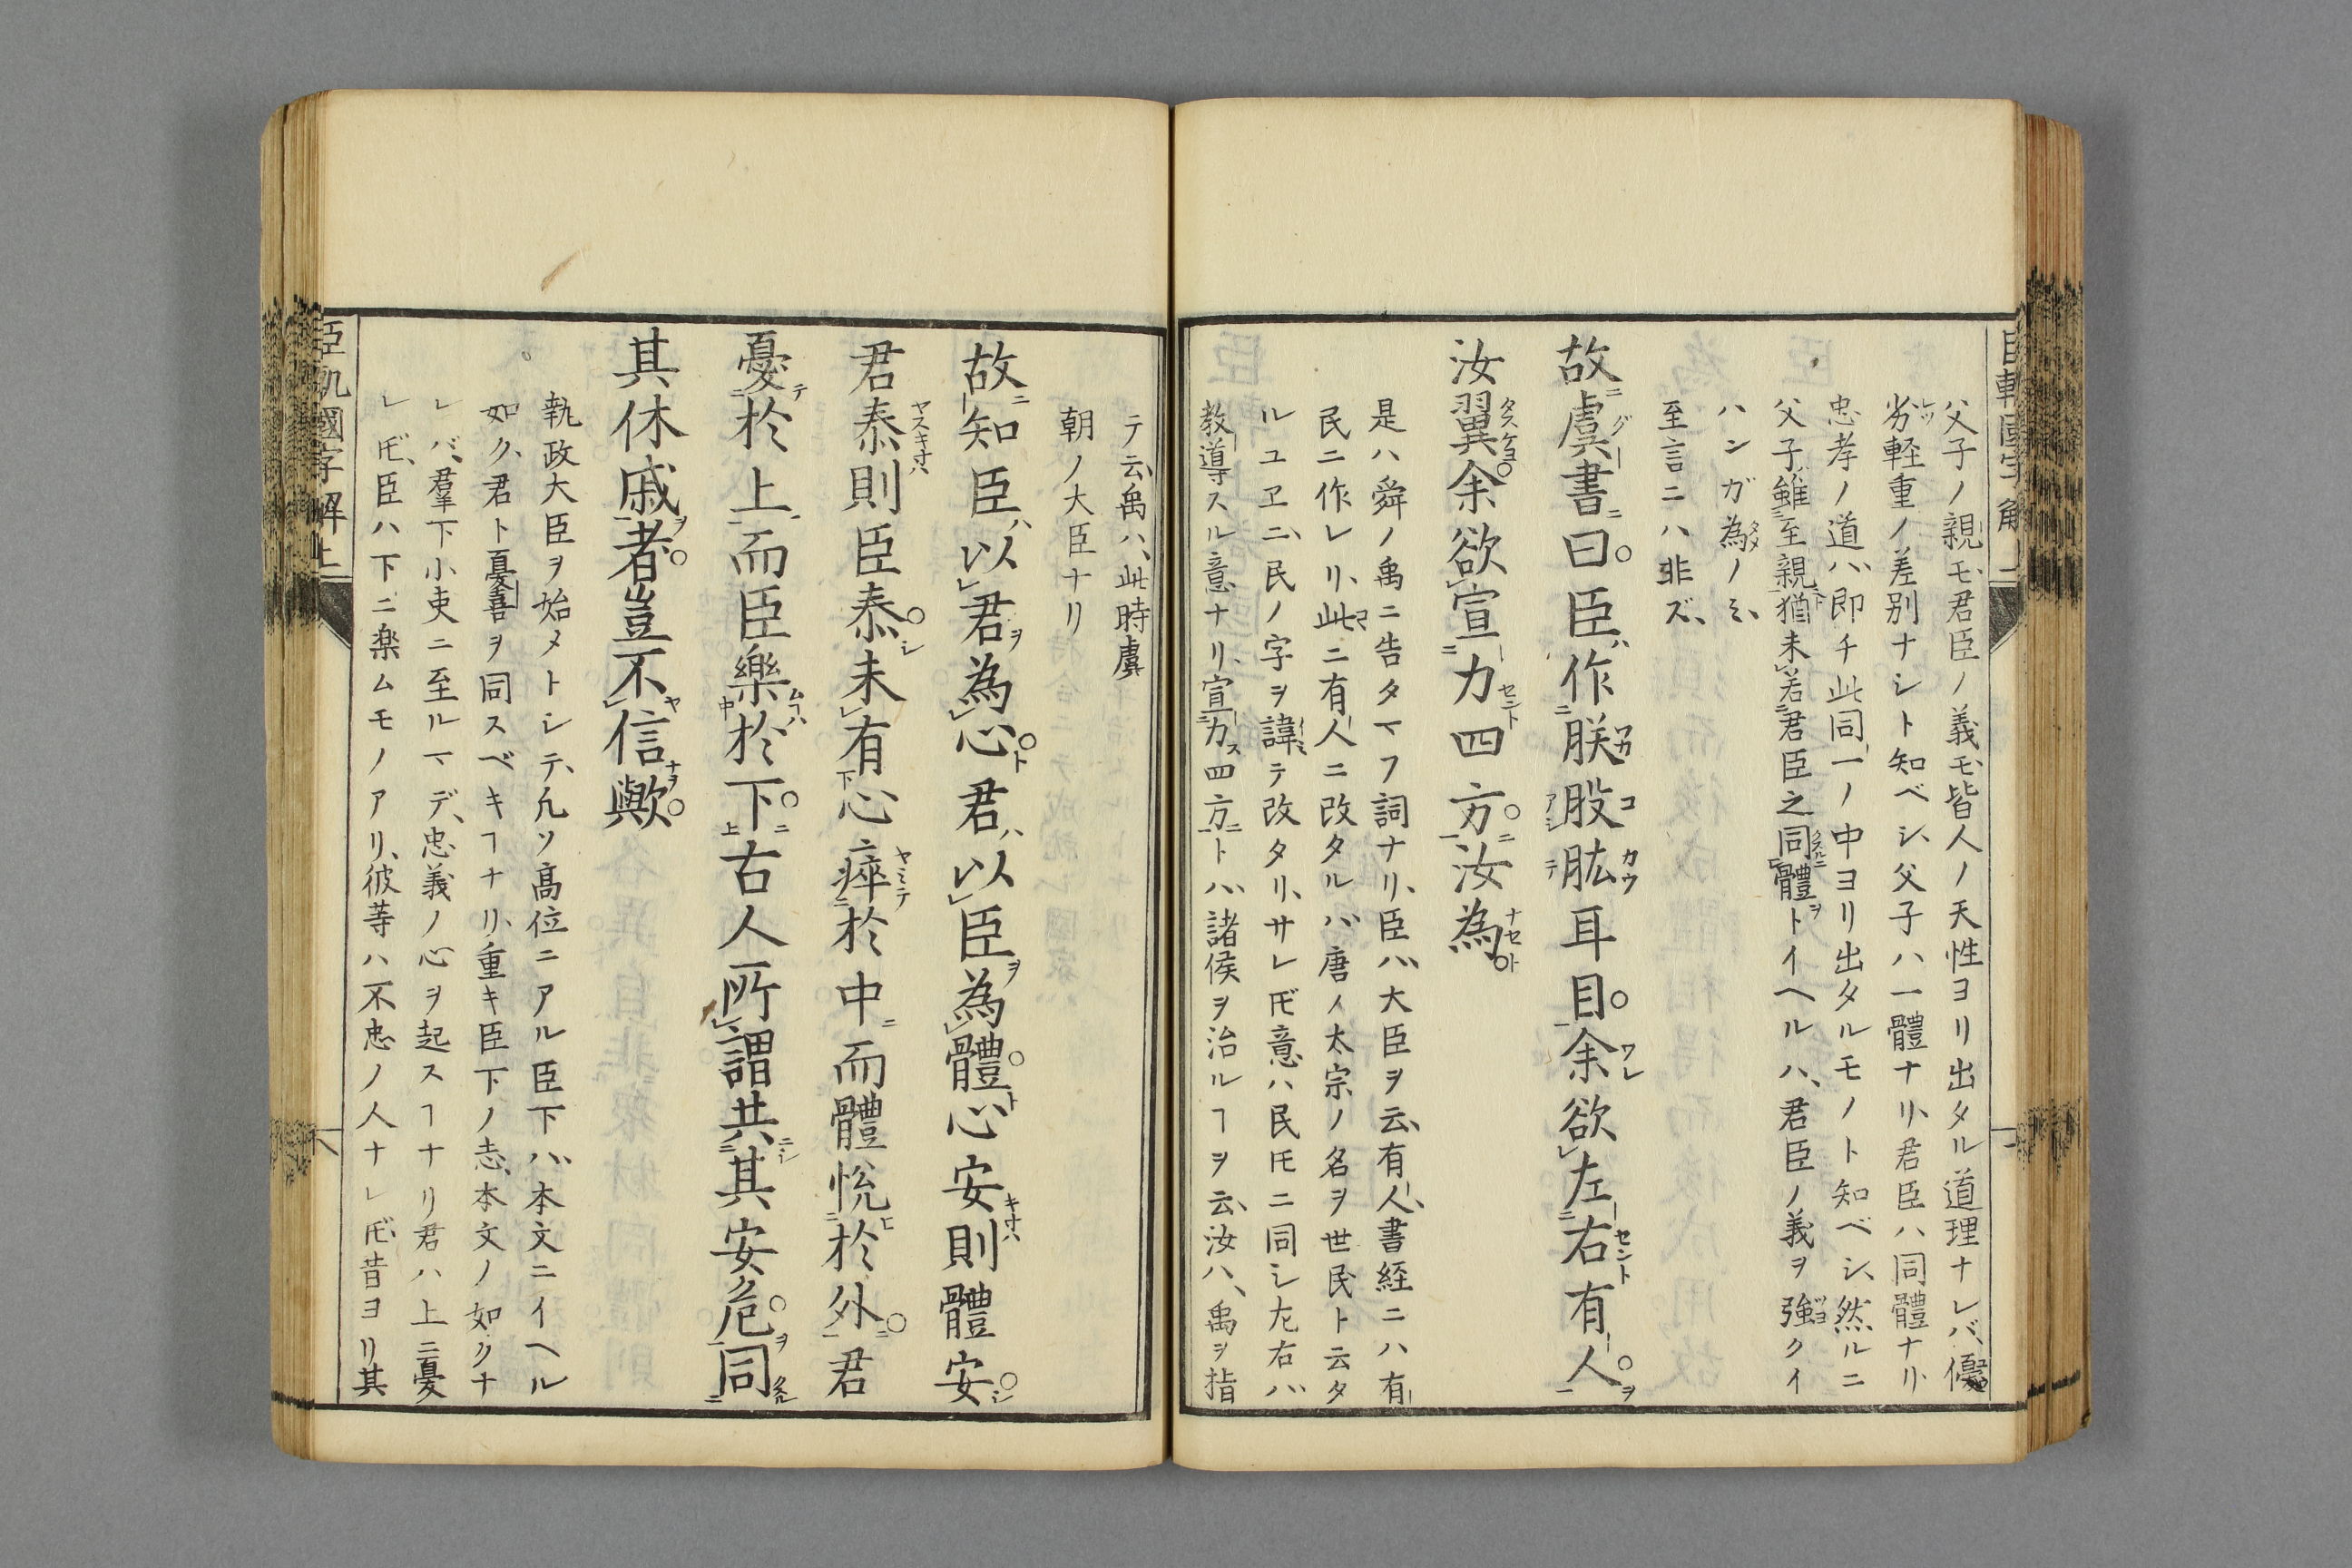 臣軌國字解 上
父子ノ親モ、君臣ノ義モ、皆人ノ天性ヨリ出タル道理ナレバ、優
劣軽重ノ差別ナシト知ベシ、父子ハ一體ナリ、君臣ハ同體ナリ、
忠孝ノ道ハ、即チ此同一ノ中ヨリ出タルモノト知ベシ、然ルニ
父子雖至親猶未若君臣之同體トイヘルハ、君臣ノ義ヲ強クイ
ハンガ為ノミ、
至言ニハ非ズ、
故虞書曰臣作朕股肱耳目余欲左右有人
汝翼余欲宣力四方汝為
是ハ舜ノ禹ニ告タマフ詞ナリ、臣ハ、大臣ヲ云、有人、書経ニハ有
民ニ作レリ、此ニ有人ニ改タルハ、唐ノ太宗ノ名ヲ世民ト云タ
ルユヱニ、民ノ字ヲ諱テ改タリ、サレ𪜈意ハ民𪜈ニ同シ左右ハ、
教導スル意ナリ、宣力四方トハ、諸侯ヲ治ルヿヲ云、汝ハ、禹ヲ指
テ云、禹ハ、此時虞
朝ノ大臣ナリ
故知臣以君為心君以臣為體心安則體安
君泰則臣泰未有心瘁於中而體悅於外君
憂於上而臣樂於下古人所謂共其安危同
其休戚者豈不信歟
執政大臣ヲ始メトシテ、凡ソ高位ニアル臣下ハ、本文ニイヘル
如ク、君ト憂喜ヲ同スベキヿナリ、重キ臣下ノ志、本文ノ如クナ
レバ、羣下小吏ニ至ルマデ、忠義ノ心ヲ起スヿナリ君ハ上ニ憂
レ𪜈、臣ハ下ニ楽ムモノアリ、彼等ハ不忠ノ人ナレ𪜈、昔ヨリ其
臣軌國字解 上